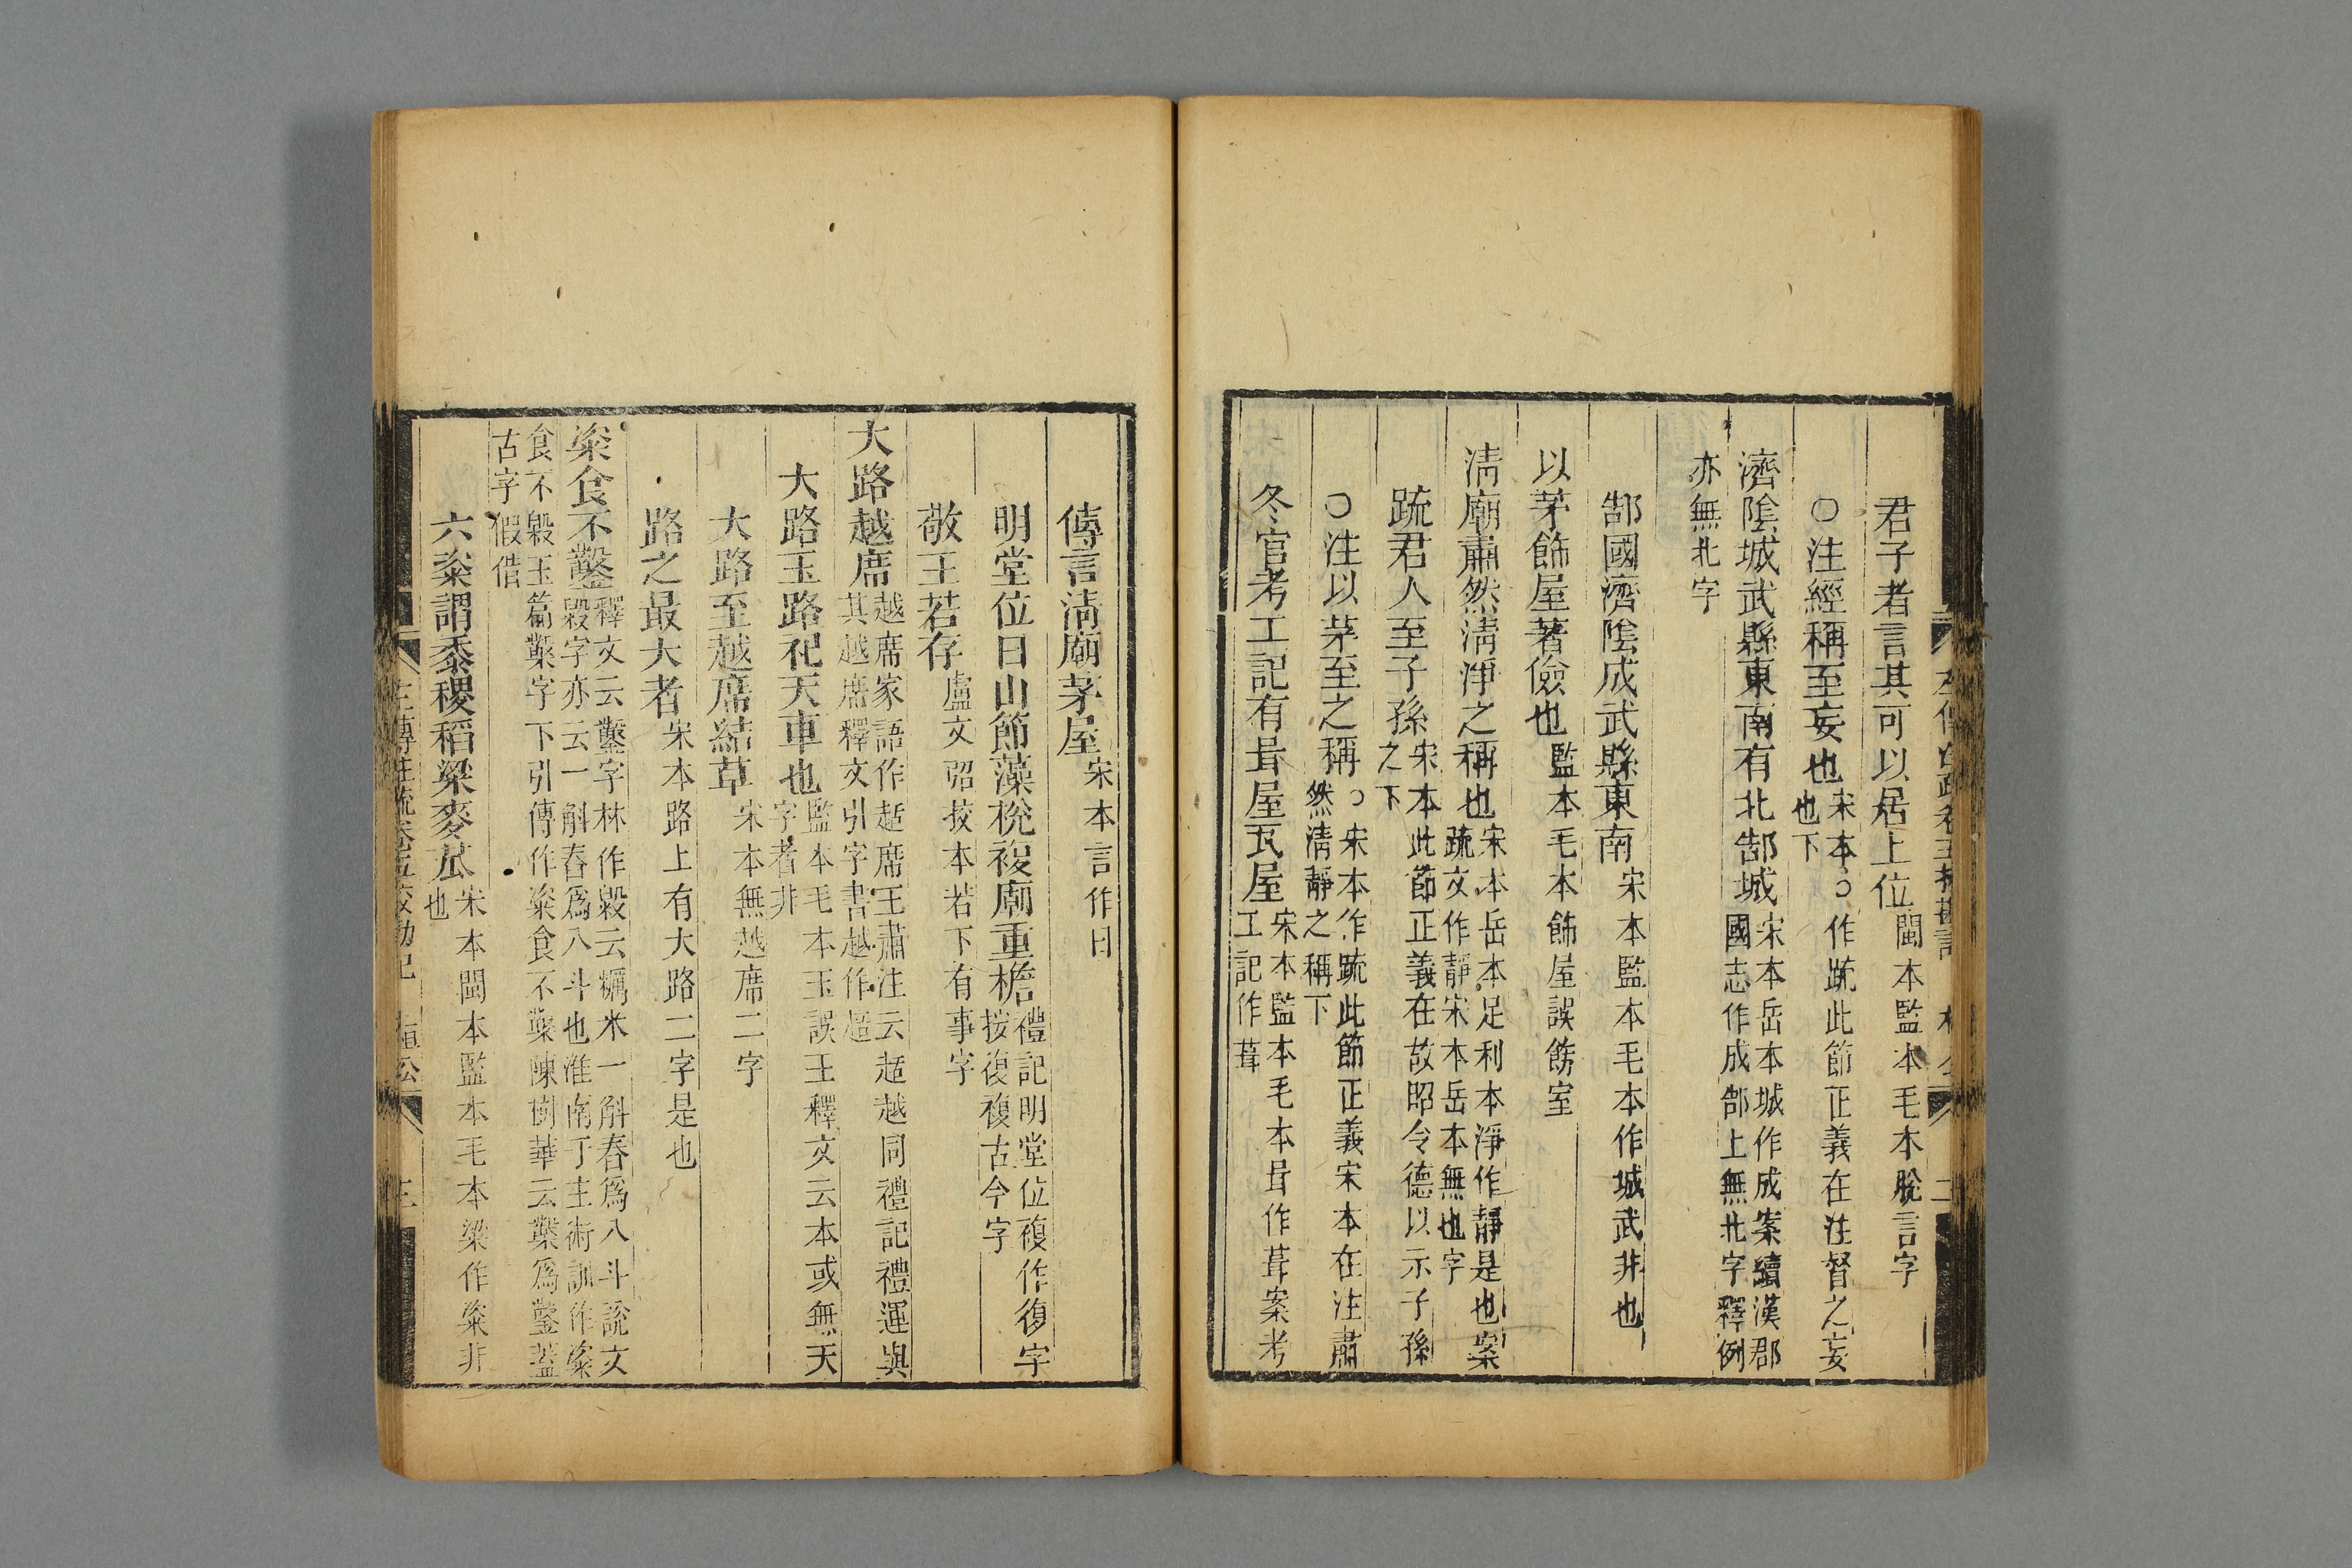 君子者言其可以居上位閩本監本毛本脫言字
○注經稱至妄也宋本○作䟽此節正義在注督之妄
也下
濟陰城武縣東南有北郜城宋本岳本城作成案續漢郡
國志作成郜上無北字釋例
亦無北字
郜國濟陰成武縣東南宋本監本毛本作城武非也
以茅飾屋著儉也監本毛本飾屋誤餝室
清廟肅然清淨之稱也宋本岳本足利本淨作靜是也案
䟽文作靜宋本岳本無也字
䟽君人至子孫宋本此節正義在故昭令德以示子孫
之下
○注以茅至之稱宋本○作䟽此節正義宋本在注肅
然清靜之稱下
冬官考工記有咠屋瓦屋宋本監本毛本咠作葺案考
工記作葺
傳言清廟茅屋宋本言作曰
明堂位曰山節藻梲複廟重檐禮記明堂位複作復字
按復複古今字
敬王若存盧文弨挍本若下有事字
大路越席越席家語作趏席王肅注云趏越同禮記禮運與
其越席釋文引字書越作趏
大路玉路祀天車也監本毛本玉誤王釋文云本或無天
字者非
大路至越席結草宋本無越席二字
路之最大者宋本路上有大路二字是也
粢食不鑿釋文云鑿字林作毇云糲米一斛舂爲八斗說文
毇字亦云一斛舂爲八斗也淮南子主術訓作粢
食不毇玉篇䊫字下引傳作粢食不䊫陳樹華云䊫爲鑿蓋
古字假借
六粢謂黍稷稻粱麥苽宋本閩本監本毛本粱作粢非
也